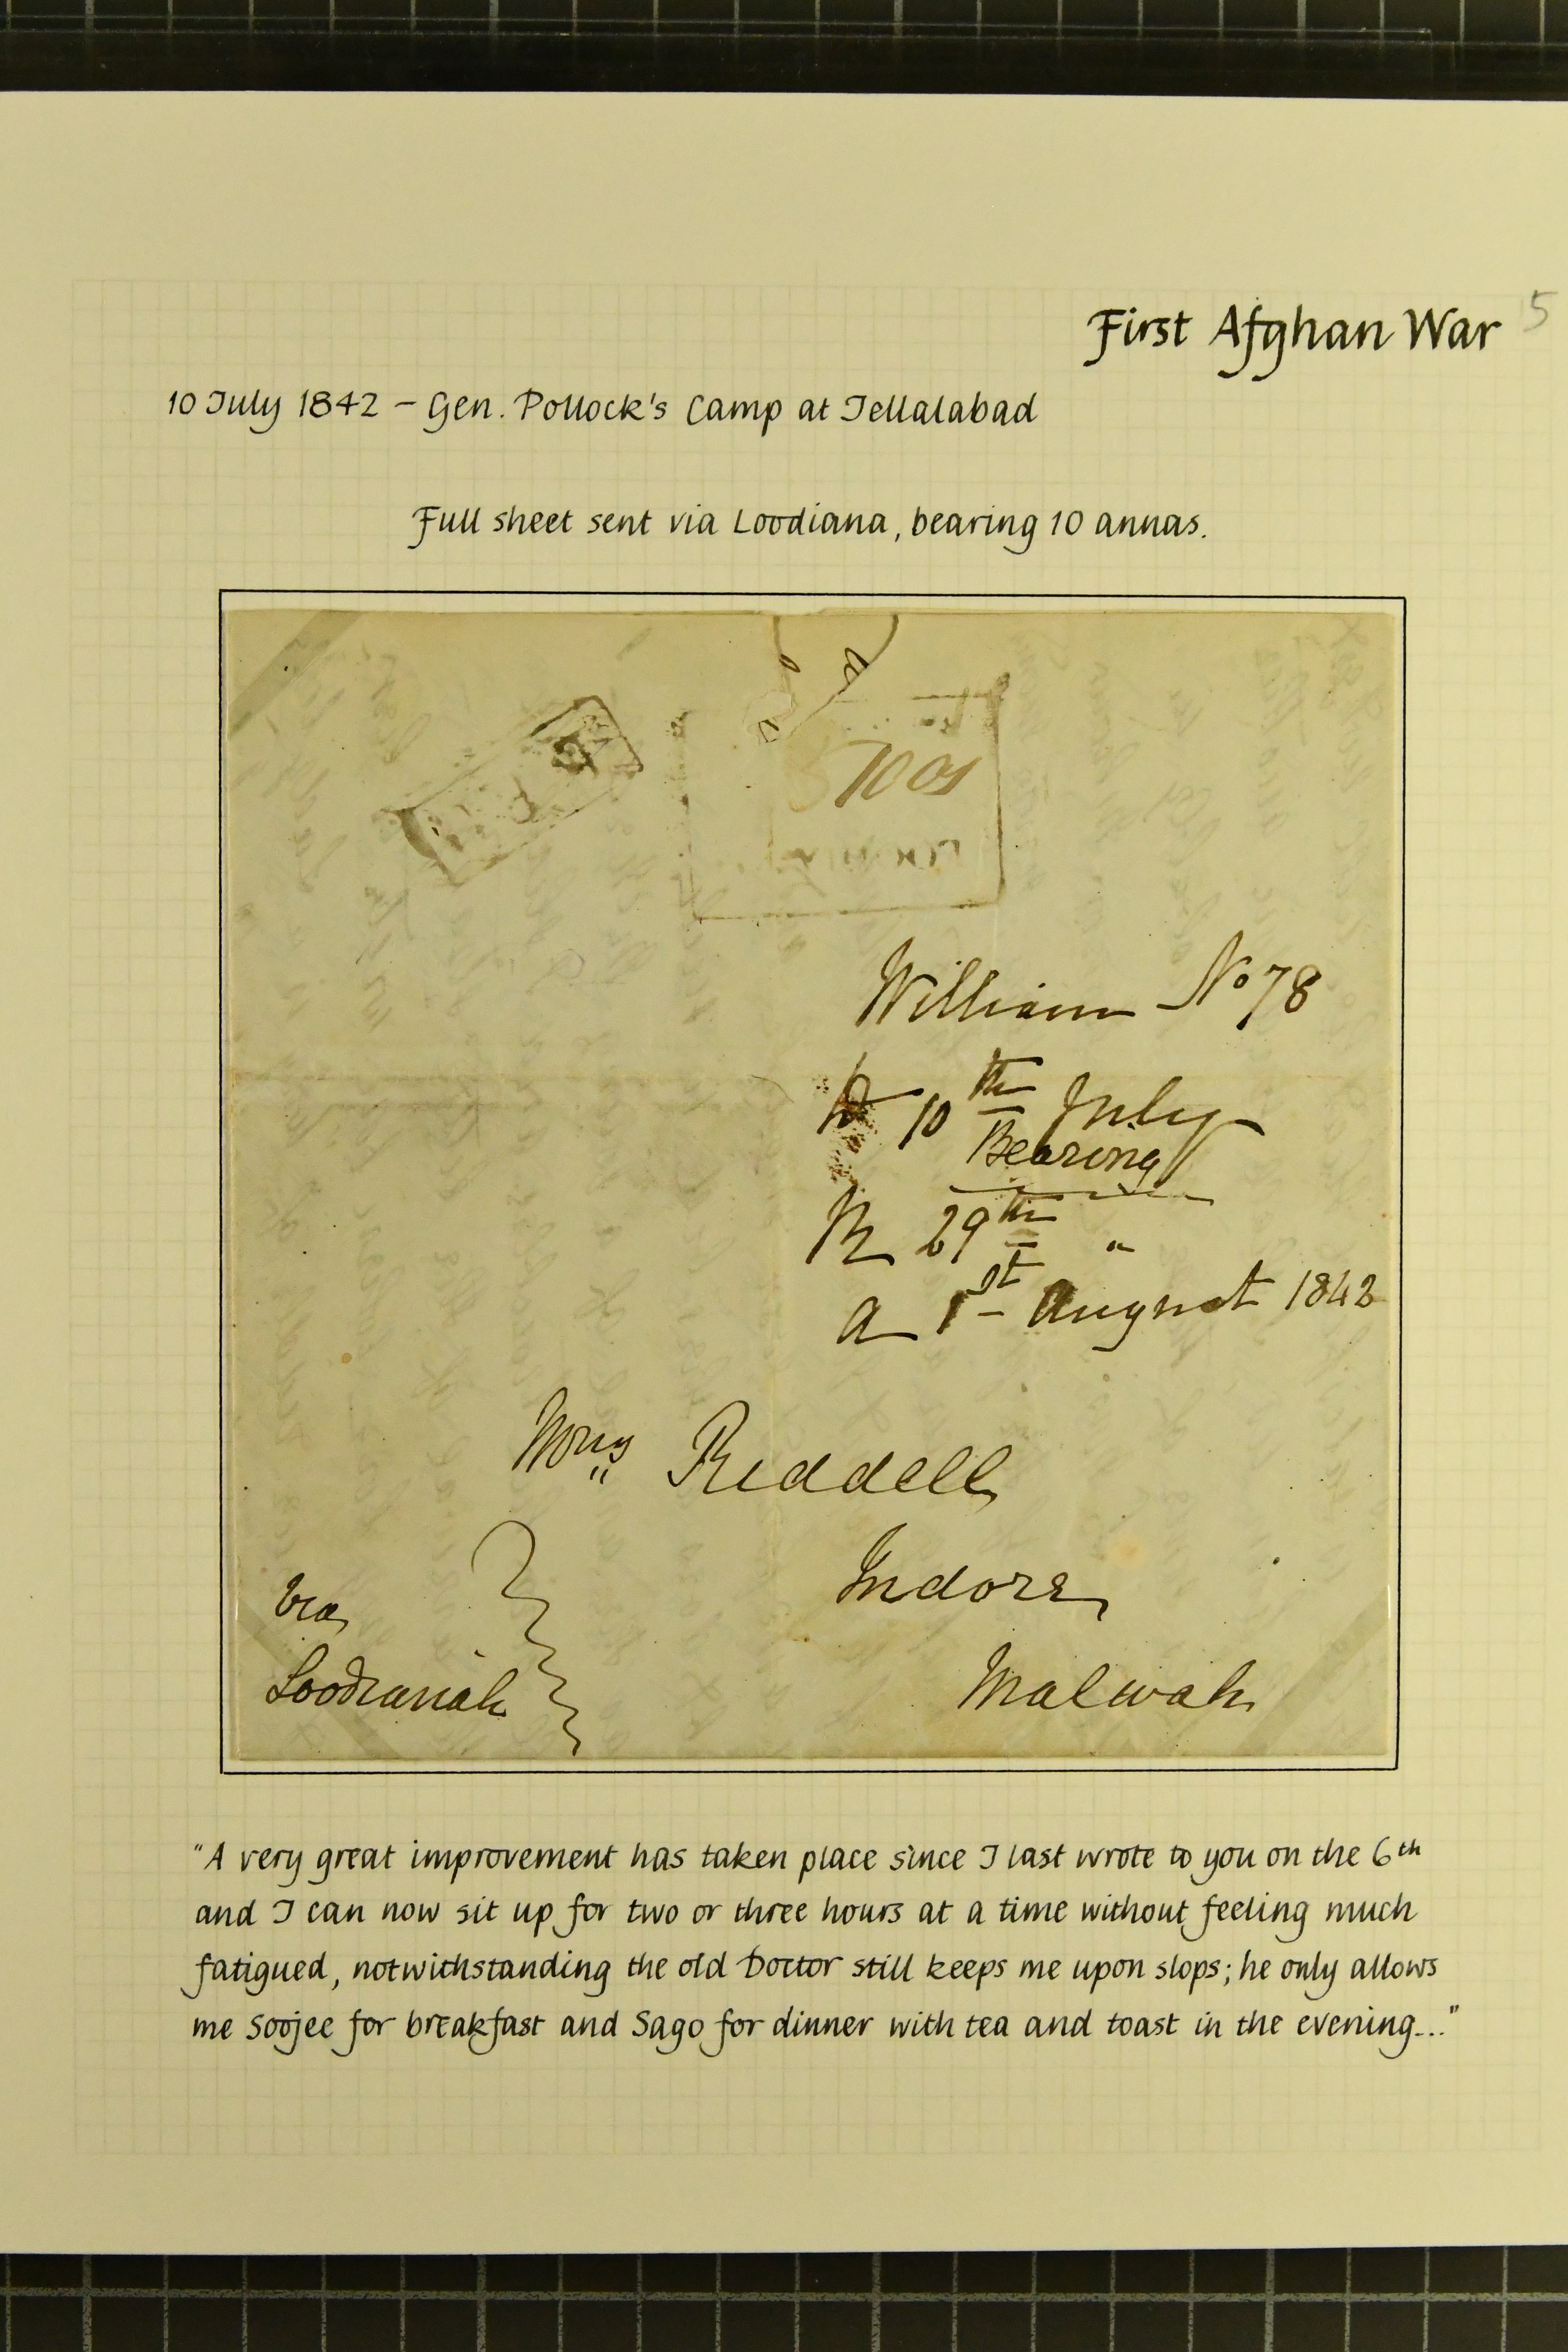 First Afghan War 5
10 July 1842 – Gen. Pollock's Camp at Jellalabad
Full sheet sent via Loodiana, bearing 10 annas.
10 as
William No 78
D 10th July
Bearing
R 29th "
a 1st August 1842
Riddell
Indore
Via
Loodianah
Malwah
"A very great improvement has taken place since I last wrote to you on the 6th
and I can now sit up for two or three hours at a time without feeling much
fatigued, notwithstanding the old Doctor still keeps me upon slops; he only allows
me Soojee for breakfast and Sago for dinner with tea and toast in the evening..."